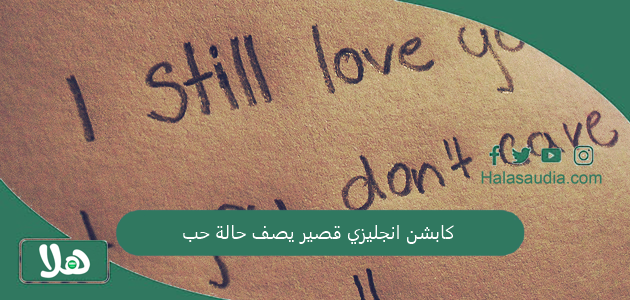 I still love yo
don't care
Halasaudia.com
كابشن انجليزي قصير يصف حالة حب
هلا